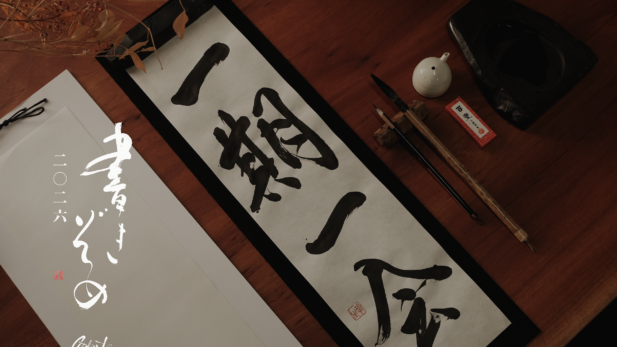 一期一会
書きぞめ
二〇二六